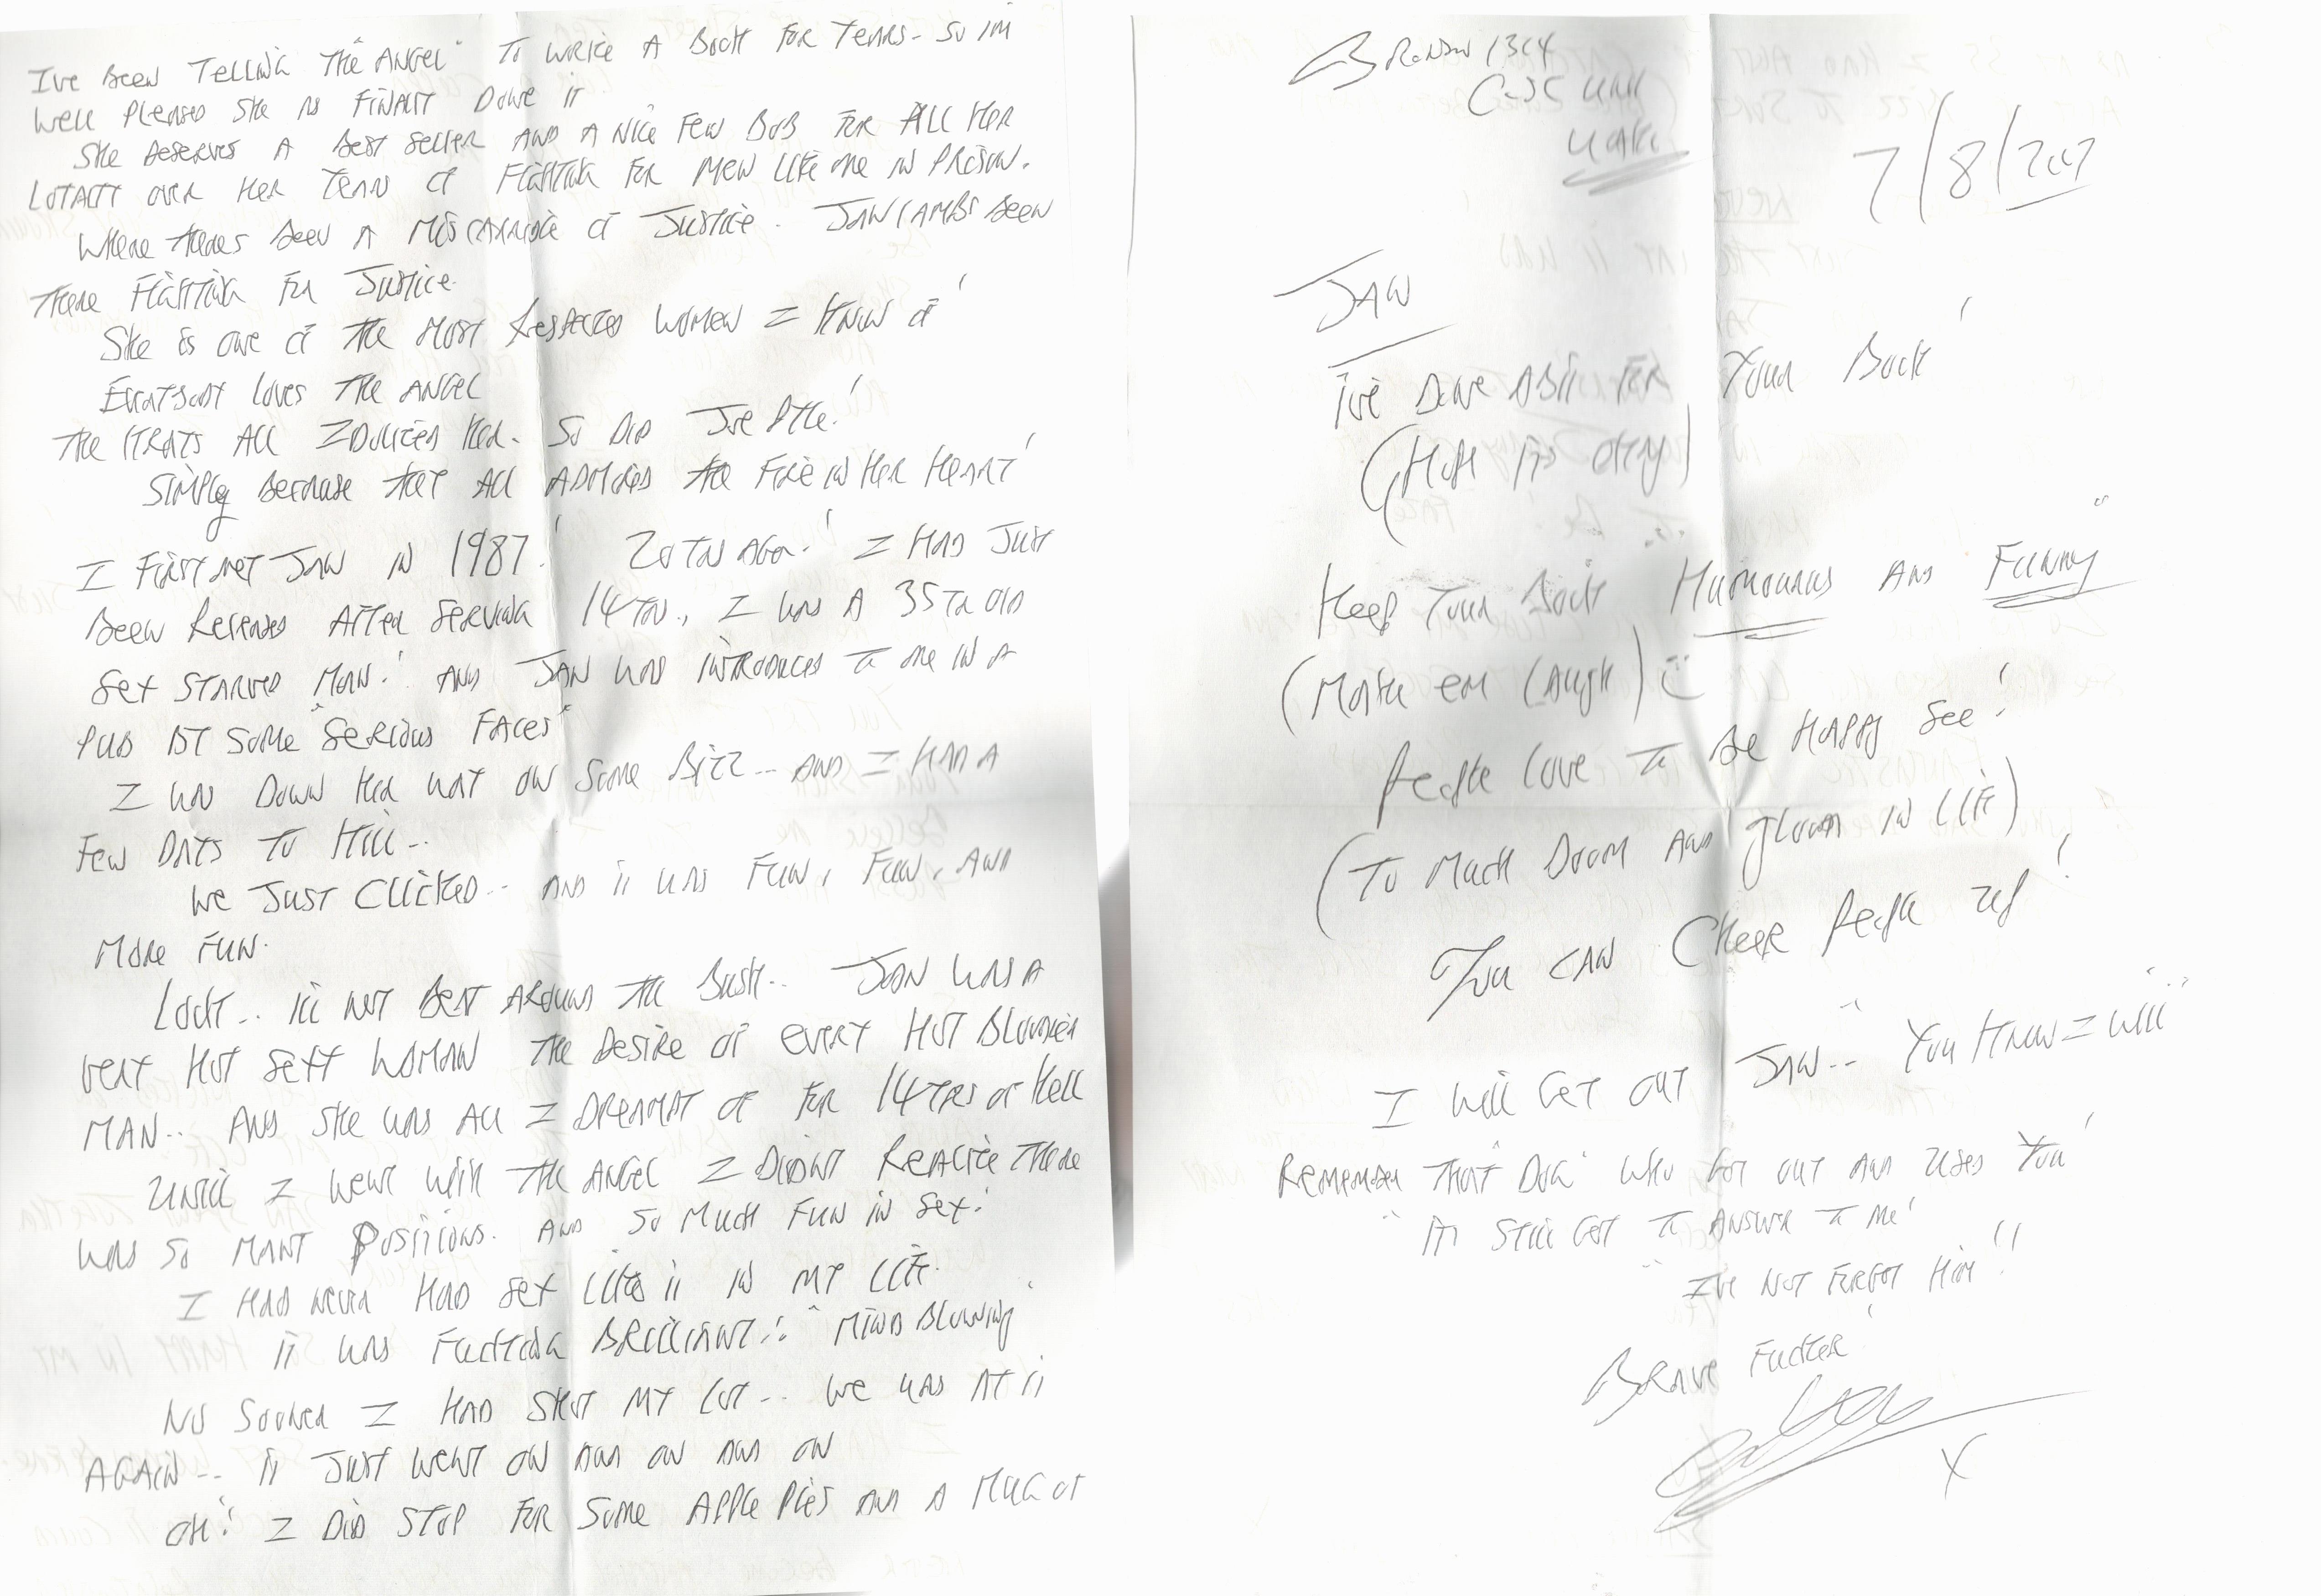 I've Been Telling The "Angel" To Write A Book For Years - So im
Well Pleased She as Finally Done it
She Deserves A Best Seller And A Nice Few Bob For All Her
Loyalty over Her Years of Fighting For Men Like me in Prison.
Where theres Been A Miscarriage of Justice. Jan Lambs Been
There Fighting For Justice.
She is one of the Most Respected Women I Know of!
Everybody Loves The Angel
The Krays All Idolised Her. So Did Joe Pyle!
Simply Because they All Admired the Fire in Her Heart!
I First met Jan in 1987! 20 Yrs Ago! I Had Just
Been Released After Serving 14 Yrs., I was A 35 Yr Old
Sex Starved Man! And Jan was introduced To me in A
Pub By Some "Serious Faces"
I was Down Her way on Some Bizz -- And I Had A
Few Days To Kill --
We Just Clicked -- And it was Fun, Fun, And
More Fun.
Look -- ill not Beat Around The Bush -- Jan was A
Very Hot Sexy Woman The Desire of Every Hot Blooded
Man -- And She was All I Dreampt of For 14 Yrs of Hell
Until I went with The Angel I Didnt Realize There
was So Many Positions. And So Much Fun in Sex!
I Had never Had Sex Like it in My Life.
it was Fucking Brilliant!! "Mind Blowing"
No Sooner I Had Shot My Lot -- We was At it
Again -- it Just went on And on And on
Oh! I Did Stop For Some Apple Pies And A Mug of
Bronson 1314
C-S-C Unit
7/8/2007
Jan
I've Done A Bit For Your Book!
(Hope its okay)
Keep Your Book Humourus And Funny"
(Make em Laugh) :)
People Love To Be Happy See!
(To Much Doom And gloom in Life)
You can Cheer People up!
I will Get out Jan -- "You Know I will"
Remember That "Dog" who got out And Used You!
"its Still Got To Answer To Me!
"I've Not Forgot Him!!
Brave Fucker!
X